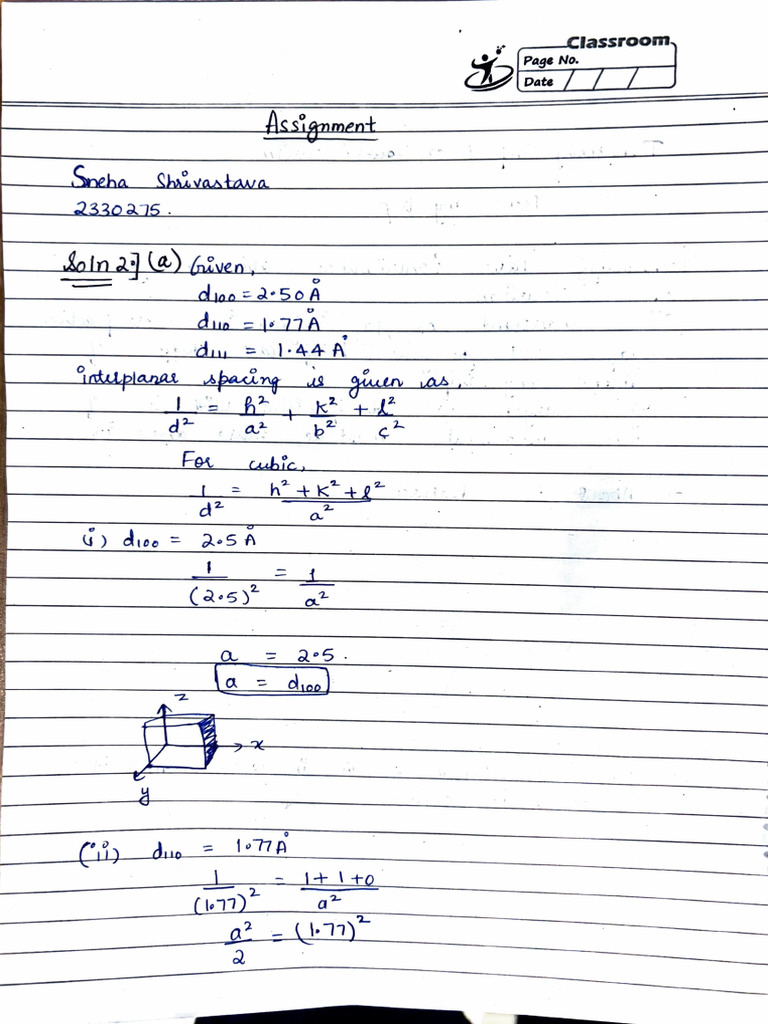 Classroom
Page No.
Date / / /
Assignment
Sneha Shrivastava
2330275.
Soln 2.] (a) Given,
d₁₀₀ = 2.50 Å
d₁₁₀ = 1.77 Å
d₁₁₁ = 1.44 Å
interplanar spacing is given as,
1/d² = h²/a² + k²/b² + l²/c²
For cubic,
1/d² = (h² + k² + l²)/a²
(i) d₁₀₀ = 2.5 Å
1/(2.5)² = 1/a²
a = 2.5.
a = d₁₀₀
z
x
y
(ii) d₁₁₀ = 1.77 Å
1/(1.77)² = (1+1+0)/a²
a²/2 = (1.77)²